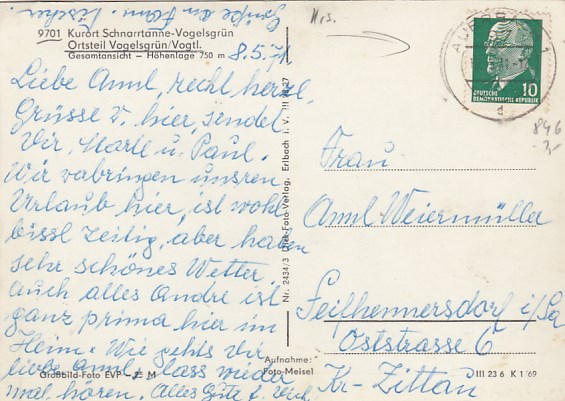 Grüße an Fam. Tischer
9701 Kurort Schnarrtanne-Vogelsgrün
Ortsteil Vogelsgrün/Vogtl.
Gesamtansicht — Höhenlage 750 m
8.5.71
Liebe Annl, recht herzl.
Grüsse v. hier, sendet
Dir, Marle u. Paul.
Wir verbringen unsren
Urlaub hier, ist wohl
bissl zeitig, aber haben
sehr schönes Wetter
auch alles Andre ist
ganz prima hier im
Heim. Wie gehts Dir
liebe Annl, lass wieder
mal hören. Alles Gute f. Dich
Großbild-Foto EVP M
Nr. 2434/3 Dick-Foto-Verlag, Erlbach i. V. III
Aufnahme:
Foto-Meisel
10
DEUTSCHE
DEMOKRATISCHE REPUBLIK
AUERB
a
846
2,-
Frau
Annl Weiermüller
Seifhennersdorf i/Sa
Oststrasse 6
Kr. Zittau
III 23 6 K 1/69